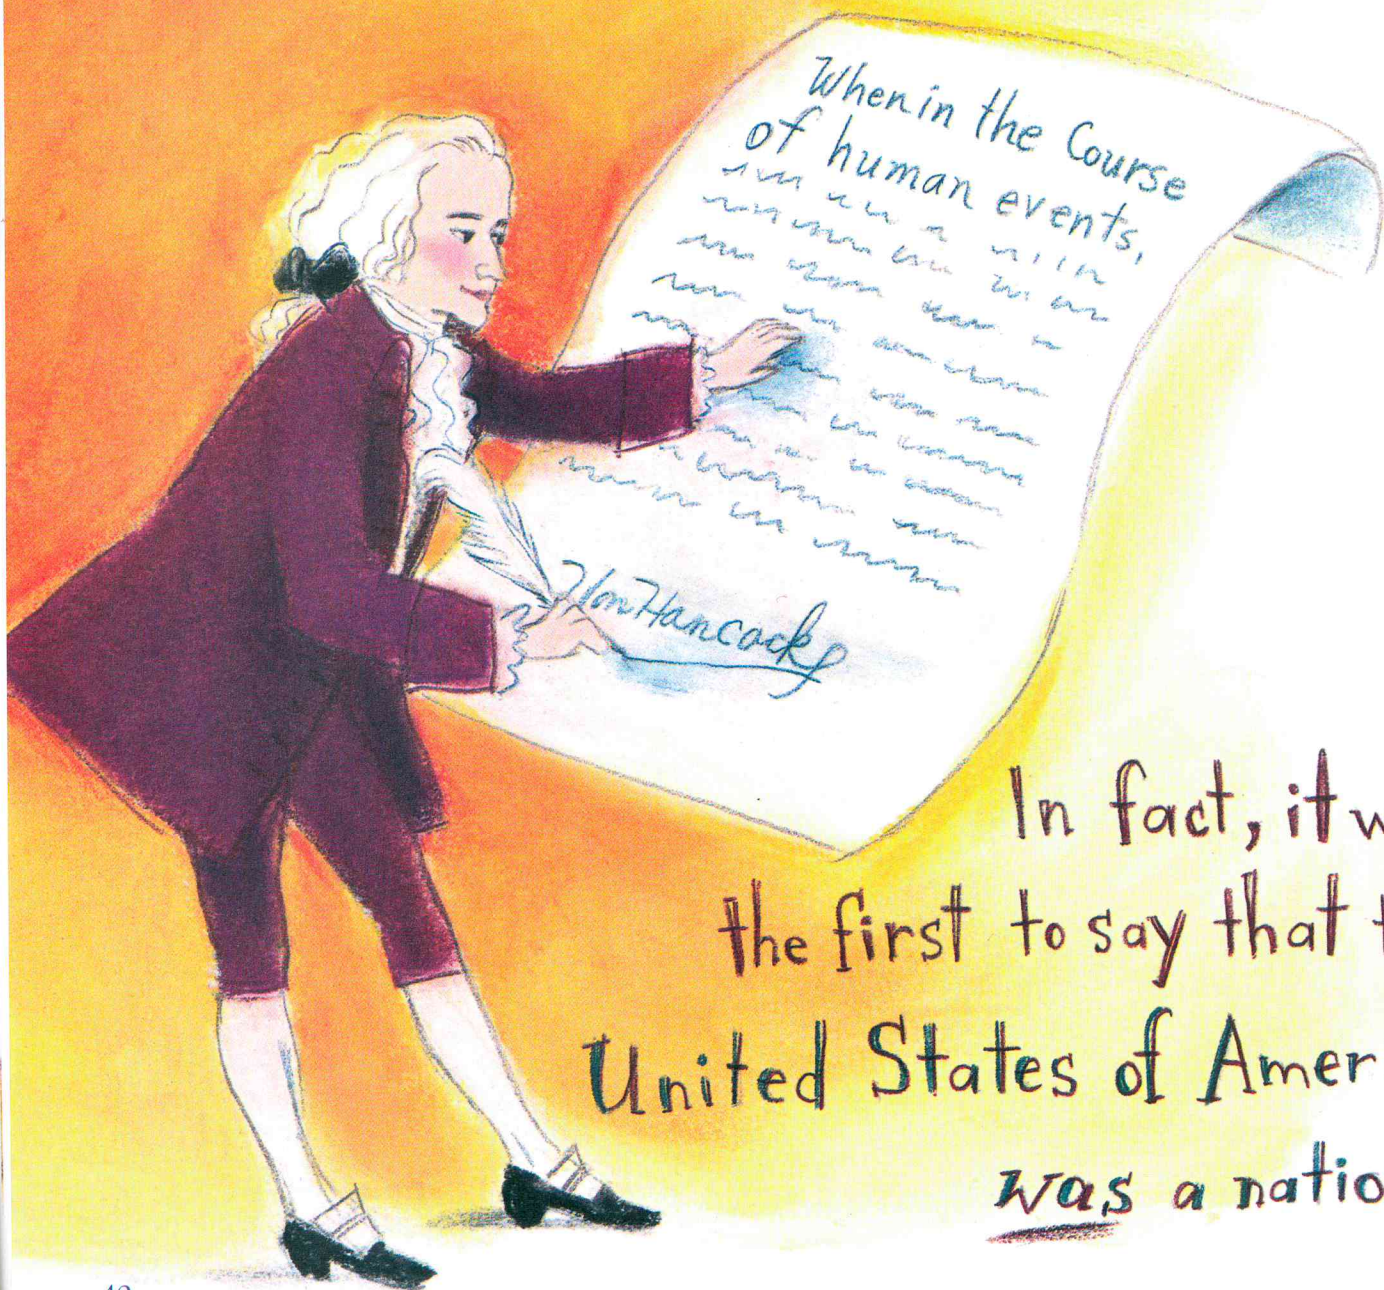 When in the Course
of human events,
Jon Hancock
In fact, it w
the first to say that t
United States of Amer
was a natio